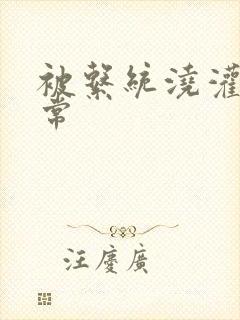 被繫統澆灌
常
汪慶廣